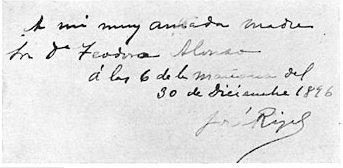 A mi muy amada madre
Sra Da Teodora Alonso
á las 6 de la mañana del
30 de Diciembre 1896
José Rizal